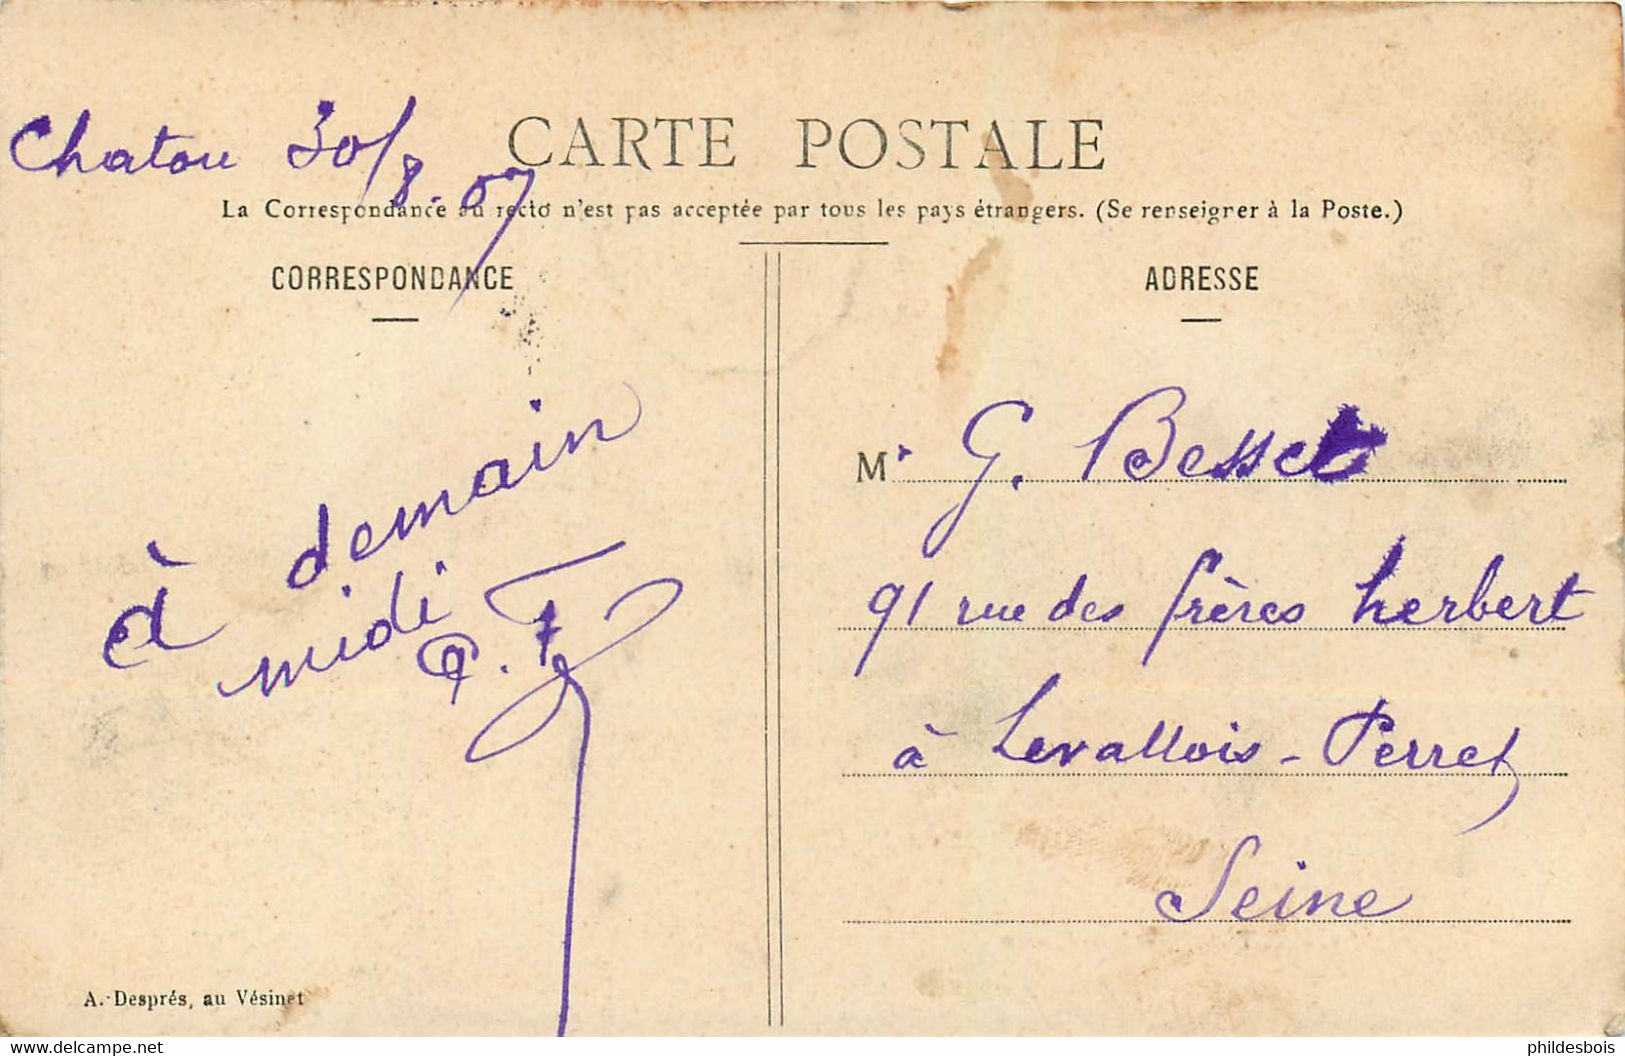 Chatou 30/8.07
CARTE POSTALE
La Correspondance au recto n'est pas acceptée par tous les pays étrangers. (Se renseigner à la Poste.)
CORRESPONDANCE
à demain
midi
A. Després, au Vésinet
ADRESSE
Mr G. Besset
91 rue des frères herbert
à Levallois-Perret
Seine
www.delcampe.net
phildesbois